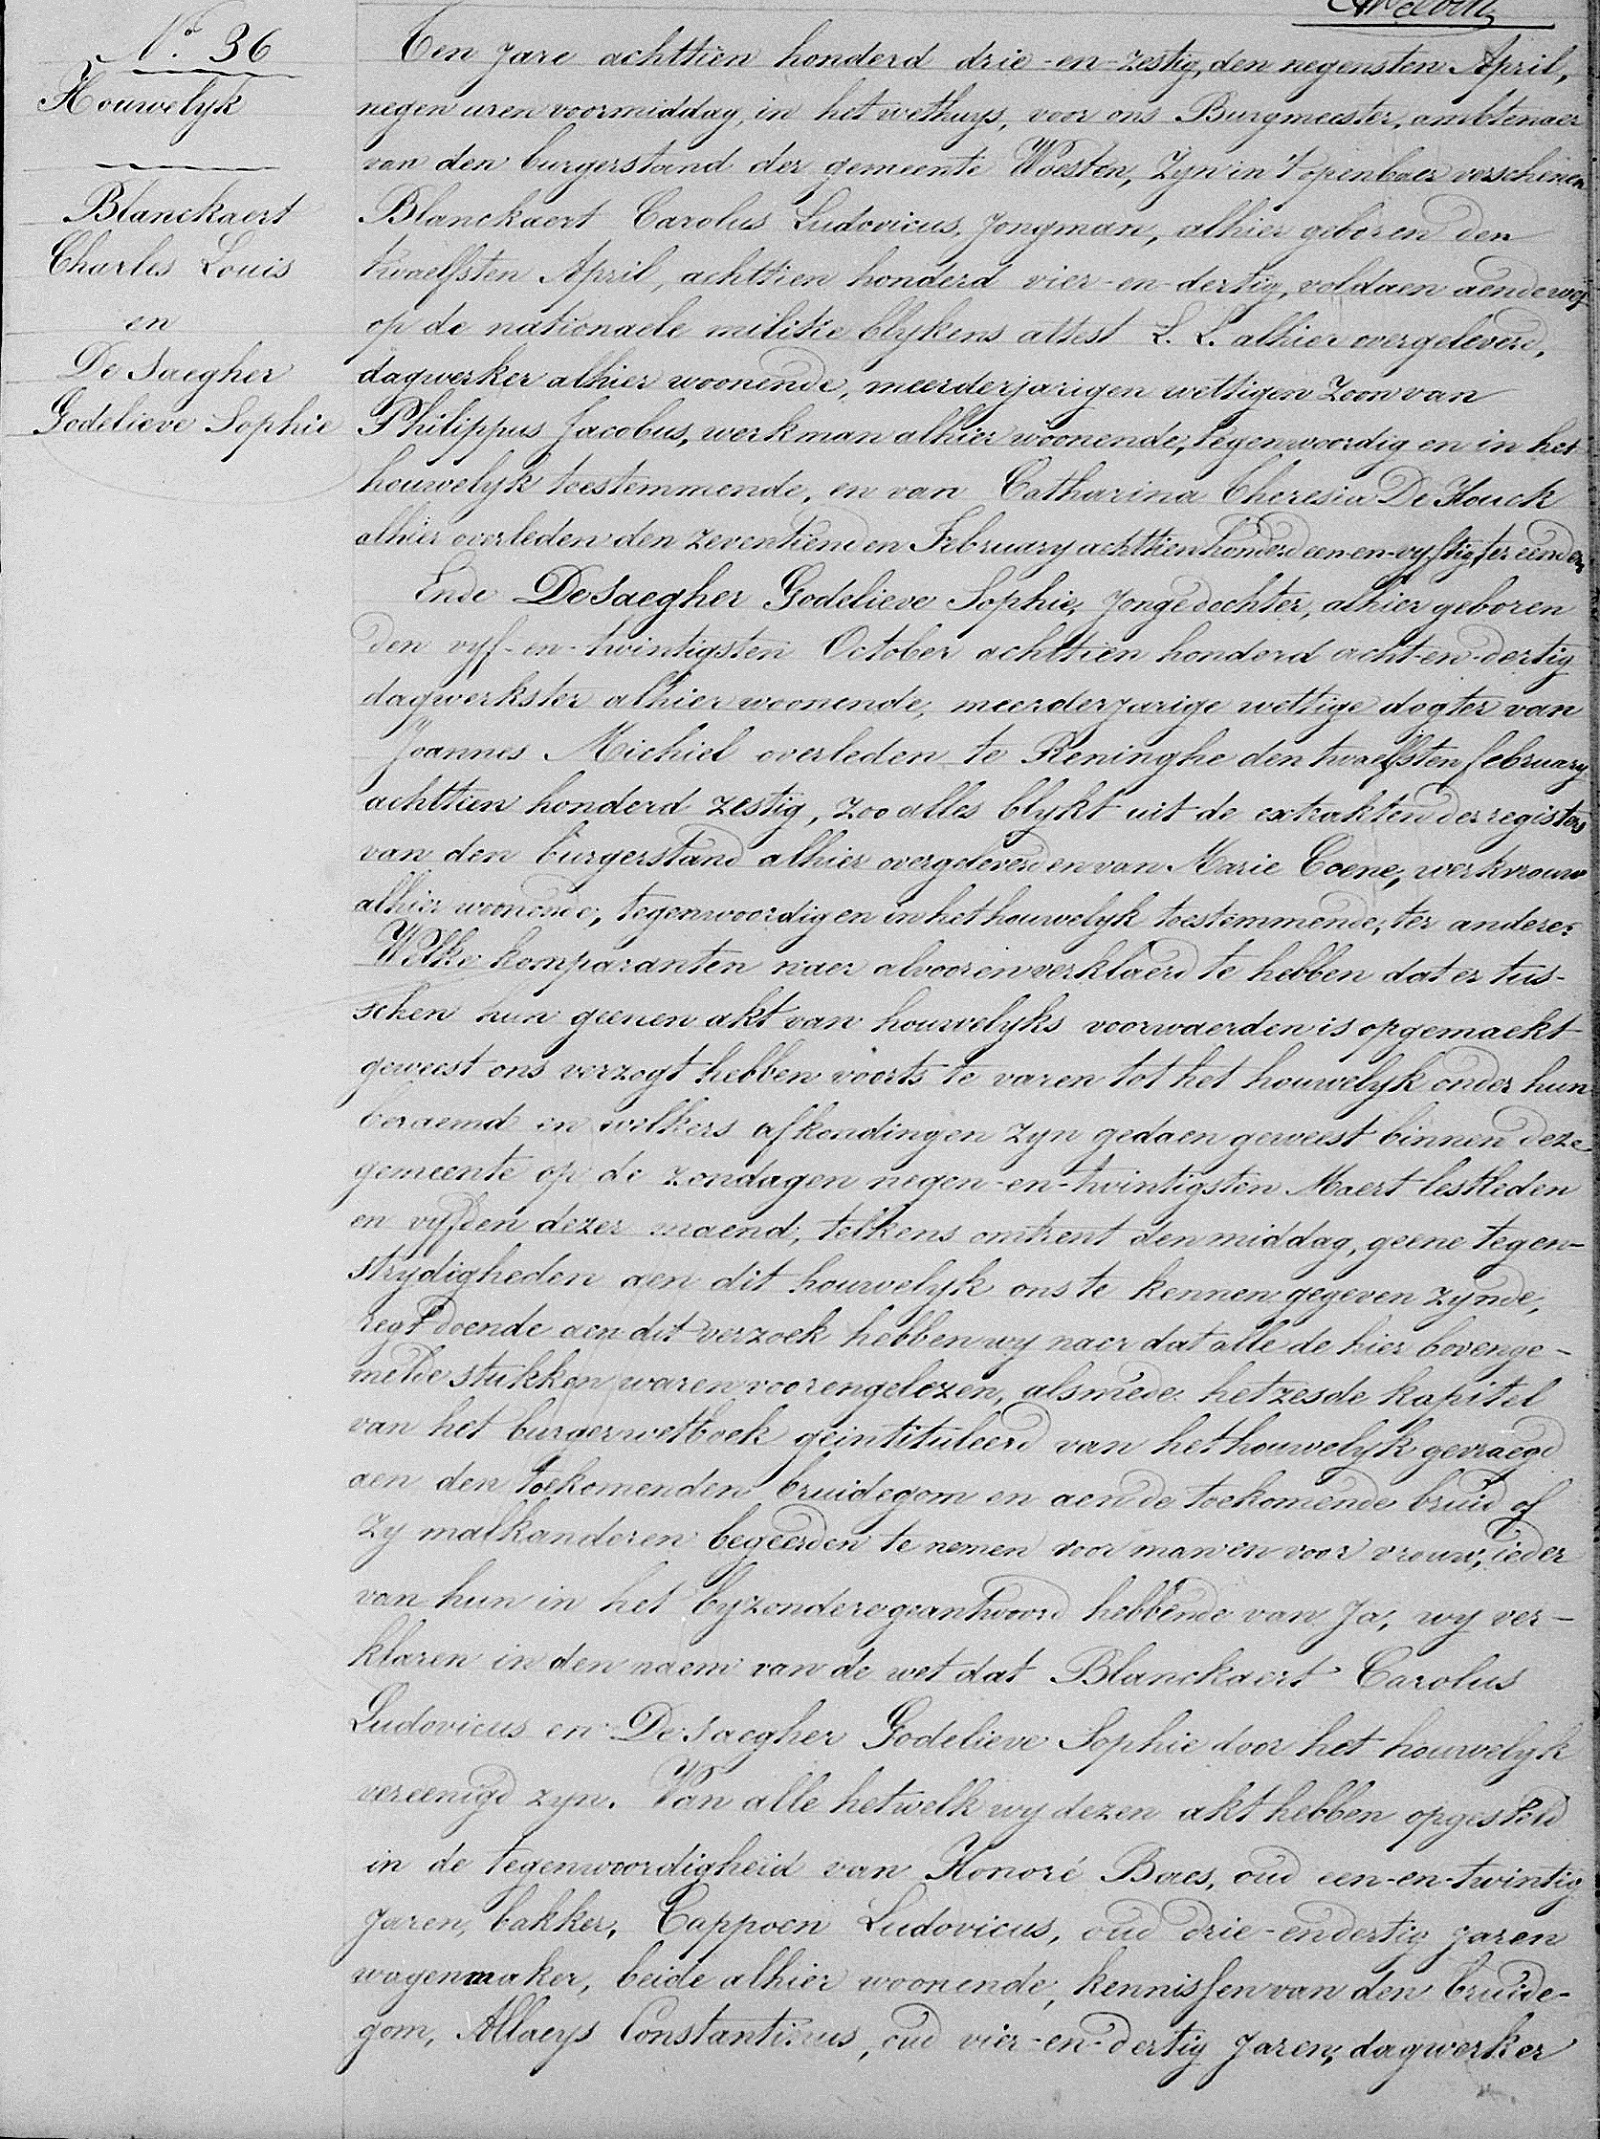 N.o 36
Houwelyk
Blanckaert
Charles Louis
en
De Saegher
Godelieve Sophie
Ten Jare achttien honderd drie-en-zestig, den negensten April,
negen uren voormiddag, in het wethuys, voor ons Burgmeester, ambtenaer
van den burgerstand der gemeente Woesten, Zyn in 't openbaer verschenen
Blanckaert Carolus Ludovicus, Jongman, alhier geboren den
twaelfsten April, achttien honderd vier-en-dertig, voldaen aen de wet
op de nationaele militie blykens attest L. L. alhier overgeleverd,
dagwerker alhier woonende, meerderjarigen wettigen Zoon van
Philippus Jacobus, werkman alhier woonende, tegenwoordig en in het
houwelyk toestemmende, en van Catharina Theresia De Houck
alhier overleden den zeventienden February achttien honderd een-en-vyftig, ter eender,
Ende De Saegher Godelieve Sophie, Jongedochter, alhier geboren
den vyf-en-twintigsten October achttien honderd acht-en-dertig
dagwerkster alhier woonende, meerderjarige wettige dogter van
Joannes Michiel overleden te Reninghe den twaelfsten february
achttien honderd zestig, zoo alles blykt uit de extrakten der registers
van den burgerstand alhier overgeleverd en van Marie Coene, werkvrouw
alhier woonende, tegenwoordig en in het houwelyk toestemmende, ter andere.
Welke komparanten naer alvooren verklaerd te hebben dat er tus-
schen hun geenen akt van houwelyks voorwaerden is opgemaekt
geweest ons verzogt hebben voorts te varen tot het houwelyk onder hun
beraemd en welkers afkondingen zyn gedaen geweest binnen deze
gemeente op de zondagen negen-en-twintigsten Maert lestleden
en vyfden dezer maend, telkens omtrent den middag, geene tegen-
strydigheden aen dit houwelyk ons te kennen gegeven zynde,
regt doende aen dit verzoek hebben wy naer dat alle de hier bovenge-
melde stukken waren voorengelezen, alsmede het zesde kapitel
van het burgerwetboek geintituleerd van het houwelyk gevraegd
aen den toekomenden bruidegom en aen de toekomende bruid of
zy malkanderen begeerden te nemen voor man en voor vrouw, ieder
van hun in het byzondere geantwoord hebbende van Ja, wy ver-
klaren in den naem van de wet dat Blanckaert Carolus
Ludovicus en De Saegher Godelieve Sophie door het houwelyk
vereenigd zyn. Van alle hetwelk wy dezen akt hebben opgesteld
in de tegenwoordigheid van Honoré Baes, oud een-en-twintig
Jaren, bakker, Cappoen Ludovicus, oud drie-en dertig jaren
wagenmaker, beide alhier woonende, kennissen van den bruide-
gom, Allaeys Constantinus, oud vier-en-dertig Jaren, dagwerker